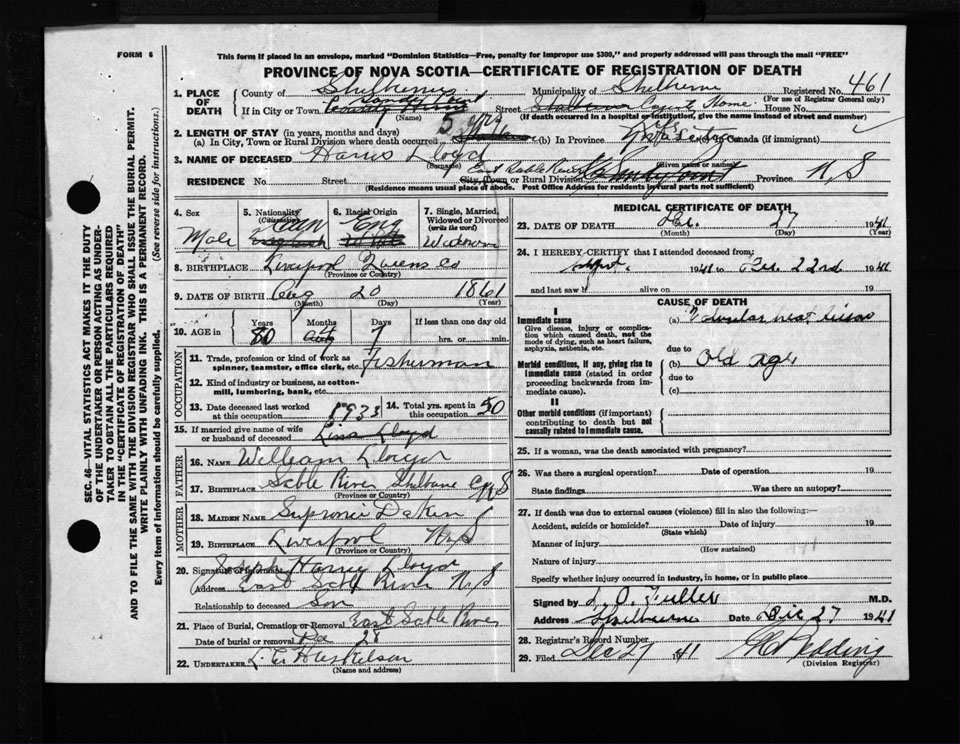 FORM 6
This form if placed in an envelope, marked "Dominion Statistics—Free, penalty for improper use $300," and properly addressed will pass through the mail "FREE"
PROVINCE OF NOVA SCOTIA—CERTIFICATE OF REGISTRATION OF DEATH
1. PLACE OF DEATH
County of Shelburne Municipality of Shelburne Registered No. 461
(For use of Registrar General only)
If in City or Town Sandy Point Street Shelburne County Home House No.
(Name) (If death occurred in a hospital or institution, give the name instead of street and number)
2. LENGTH OF STAY (in years, months and days)
(a) In City, Town or Rural Division where death occurred 5 yrs (b) In Province Life (c) In Canada (if immigrant)
3. NAME OF DECEASED Harris Lloyd
(Surname) (Given name or names)
RESIDENCE No. Street East Sable River City, Town or Rural Division Sandy Point Province N.S
(Residence means usual place of abode. Post Office Address for residents in rural parts not sufficient)
4. Sex Male
5. Nationality (Citizenship) Can
6. Racial Origin Eng
7. Single, Married, Widowed or Divorced (write the word) Widower
8. BIRTHPLACE Liverpool Queens Co
(Province or Country)
9. DATE OF BIRTH Aug 20 1861
(Month) (Day) (Year)
10. AGE in Years 80 Months 4 Days 7 If less than one day old
hrs. or min.
OCCUPATION
11. Trade, profession or kind of work as spinner, teamster, office clerk, etc. Fisherman
12. Kind of industry or business, as cotton-mill, lumbering, bank, etc.
13. Date deceased last worked at this occupation 1933
14. Total yrs. spent in this occupation 50
15. If married give name of wife or husband of deceased Lloyd
FATHER
16. NAME William Lloyd
17. BIRTHPLACE Sable River Shelburne Co N S
(Province or Country)
MOTHER
18. MAIDEN NAME Dakin
19. BIRTHPLACE Liverpool N.S
(Province or Country)
20. Signature of informant Harvey Lloyd
Address East Sable River N.S
Relationship to deceased Son
21. Place of Burial, Cremation or Removal East Sable River
Date of burial or removal Dec 28
22. UNDERTAKER
(Name and address)
MEDICAL CERTIFICATE OF DEATH
23. DATE OF DEATH Dec. 27 1941
(Month) (Day) (Year)
24. I HEREBY CERTIFY that I attended deceased from:
Sept. 1941 to Dec. 22nd 1941
and last saw h alive on 19
CAUSE OF DEATH
I
Immediate cause
Give disease, injury or complication which caused death, not the mode of dying, such as heart failure, asphyxia, asthenia, etc.
(a) Valvular heart lesion
due to
Morbid conditions, if any, giving rise to immediate cause (stated in order proceeding backwards from immediate cause).
(b) Old age
due to
(c)
II
Other morbid conditions (if important) contributing to death but not causally related to immediate cause.
25. If a woman, was the death associated with pregnancy?
26. Was there a surgical operation? Date of operation 19
State findings Was there an autopsy?
27. If death was due to external causes (violence) fill in also the following:—
Accident, suicide or homicide? Date of injury 19
(State which)
Manner of injury
(How sustained)
Nature of injury
Specify whether injury occurred in industry, in home, or in public place
Signed by L. O. Fuller M.D.
Address Shelburne Date Dec 27 1941
28. Registrar's Record Number
29. Filed Dec 27 1941
(Division Registrar)
SEC. 46—VITAL STATISTICS ACT MAKES IT THE DUTY
OF THE UNDERTAKER OR PERSON ACTING AS UNDER-
TAKER TO OBTAIN ALL THE PARTICULARS REQUIRED
IN THE "CERTIFICATE OF REGISTRATION OF DEATH"
AND TO FILE THE SAME WITH THE DIVISION REGISTRAR WHO SHALL ISSUE THE BURIAL PERMIT.
WRITE PLAINLY WITH UNFADING INK. THIS IS A PERMANENT RECORD.
Every item of information should be carefully supplied. (See reverse side for instructions.)